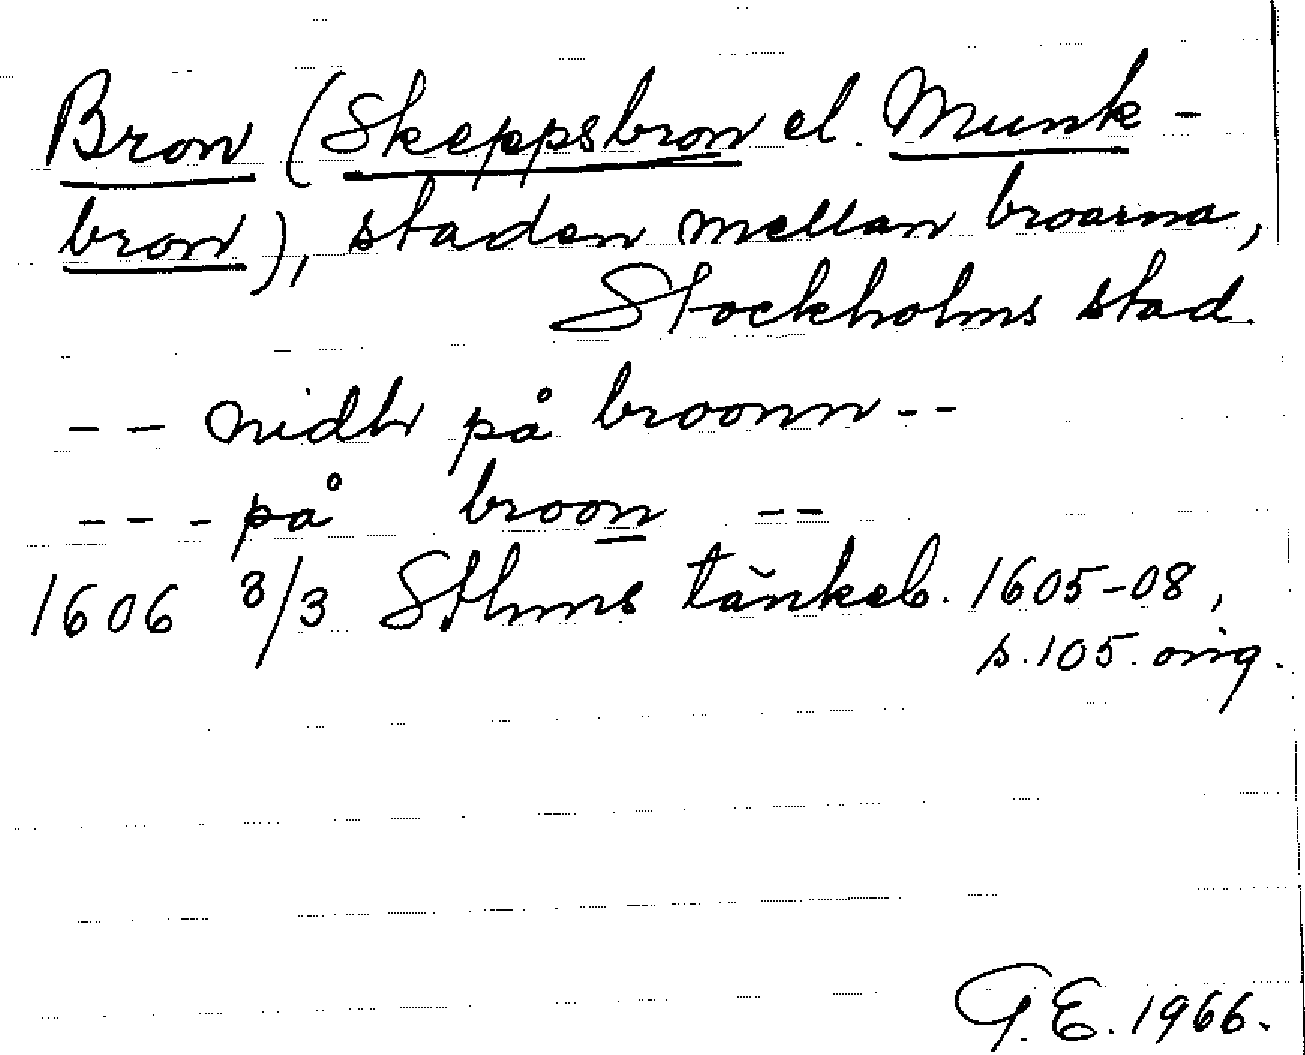 Bron (Skeppsbron el. Munk-
bron), staden mellan broarna,
Stockholms stad.
-- nidhr på broonn --
--- på broon --
1606 3/3 Sthms tänkeb. 1605-08,
s. 105. orig.
G.E. 1966.